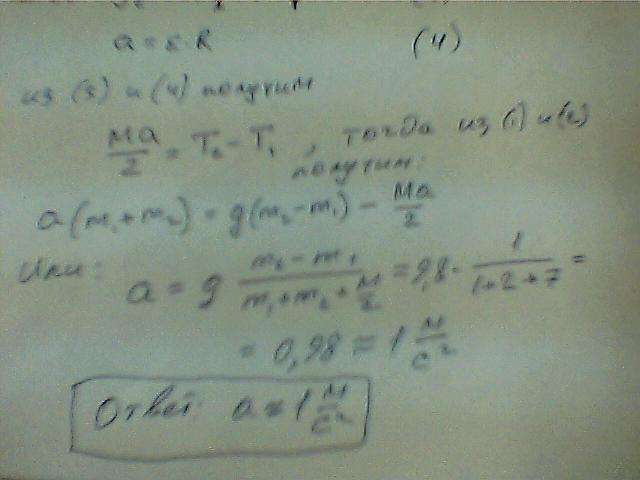 a = ε·R (4)
из (3) и (4) получим
Ma/2 = T₂ - T₁, тогда из (1) и (2)
получим:
a(m₁+m₂) = g(m₂-m₁) - Ma/2
Или: a = g (m₂ - m₁)/(m₁+m₂+M/2) = 9,8· 1/(1+2+7) =
= 0,98 ≈ 1 м/с²
Ответ: a ≈ 1 м/с²